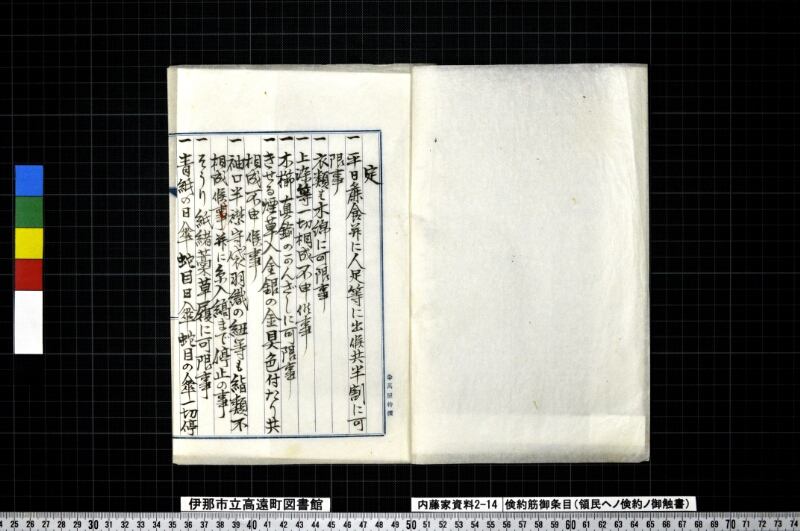 定
一 平日麁食并に人足等に出候共半割に可
限事
一 衣類も木綿に可限事
一 上漆等一切相成不申候事
一 木櫛真鍮のかんざしに可限事
一 きせる煙草入金銀の金具色付たり共
相成不申候事
一 袖口半襟守袋羽織の紐等も絹類不
相成候事并に糸入縞まで停止の事
一 そうり紙緒藁草履に可限事
一 青紙の日傘蛇目日傘蛇目の傘一切停
伊那市立高遠町図書館
内藤家資料2-14 倹約筋御条目(領民ヘノ倹約ノ御触書)